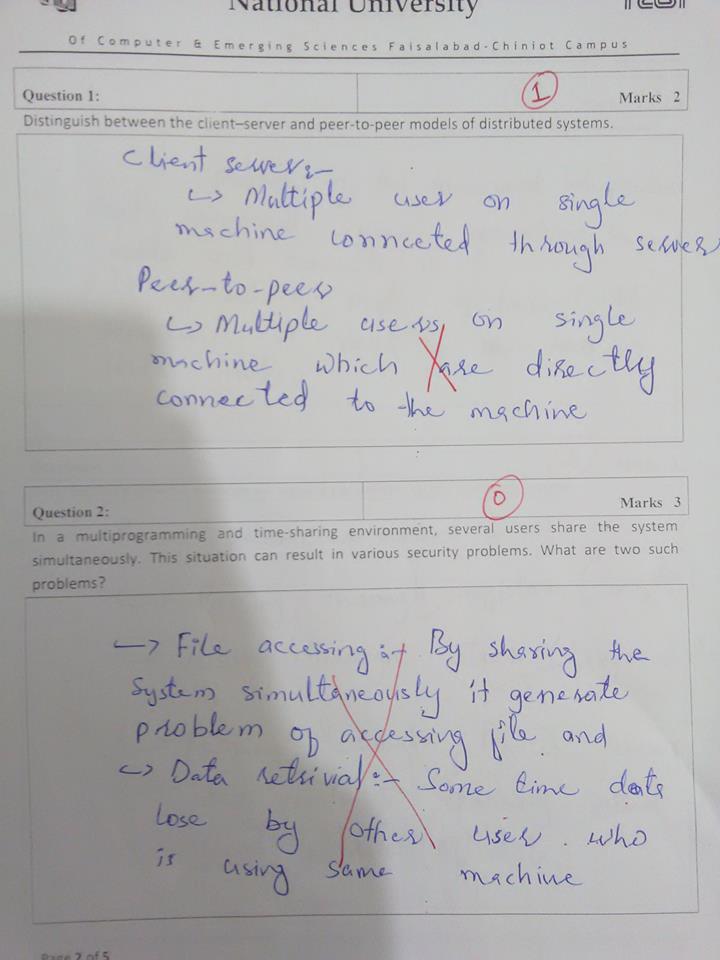 National University
Of Computer & Emerging Sciences Faisalabad-Chiniot Campus
Question 1:
1
Marks 2
Distinguish between the client–server and peer-to-peer models of distributed systems.
Client server:-
↳ Multiple user on single
machine connceted through server
Peer-to-peer
↳ Multiple users, on single
machine which are directly
connected to the machine
Question 2:
0
Marks 3
In a multiprogramming and time-sharing environment, several users share the system
simultaneously. This situation can result in various security problems. What are two such
problems?
↳ File accessing:- By sharing the
System simultaneously it generate
problem of accessing file and
↳ Data retrivial:- Some time data
lose by other user. who
is using same machine
Page 2 of 5